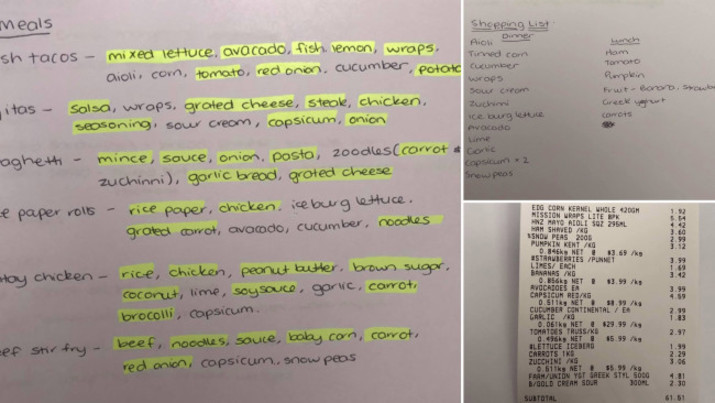 Meals
sh tacos – mixed lettuce, avocado, fish, lemon, wraps,
aioli, corn, tomato, red onion, cucumber, potato
itas – salsa, wraps, grated cheese, steak, chicken,
seasoning, sour cream, capsicum, onion
aghetti – mince, sauce, onion, pasta, zoodles (carrot &
zuchinni), garlic bread, grated cheese
e paper rolls – rice paper, chicken, iceburg lettuce,
grated carrot, avocado, cucumber, noodles
tay chicken – rice, chicken, peanut butter, brown sugar,
coconut, lime, soy sauce, garlic, carrot,
brocolli, capsicum.
eef stir fry – beef, noodles, sauce, baby corn, carrot,
red onion, capsicum, snow peas
Shopping List
Dinner
Aioli
Tinned corn
Cucumber
Wraps
Sour cream
Zuchinni
Ice burg lettuce
Avocado
Lime
Garlic
Capsicum × 2
Snow peas
Lunch
Ham
Tomato
Pumpkin
Fruit – Banana, Strawb
Greek yoghurt
Carrots
EDG CORN KERNEL WHOLE 420GM 1.92
MISSION WRAPS LITE 8PK 5.54
HNZ MAYO AIOLI SQZ 295ML 4.42
HAM SHAVED /KG 3.60
%SNOW PEAS 200G 2.99
PUMPKIN KENT /KG 3.12
0.846kg NET @ $3.69 /kg
#STRAWBERRIES /PUNNET 3.99
LIMES/ EACH 1.69
BANANAS /KG 3.42
0.856kg NET @ $3.99 /kg
AVOCADOES EA 3.99
CAPSICUM RED/KG 4.59
0.511kg NET @ $8.99 /kg
CUCUMBER CONTINENTAL / EA 2.99
GARLIC /KG 1.83
0.061kg NET @ $29.99 /kg
TOMATOES TRUSS/KG 2.97
0.496kg NET @ $5.99 /kg
#LETTUCE ICEBERG 1.99
CARROTS 1KG 2.29
ZUCCHINI /KG 3.06
0.511kg NET @ $5.99 /kg
FARM/UNION YGT GREEK STYL 500G 4.81
B/GOLD CREAM SOUR 300ML 2.30
SUBTOTAL 61.51